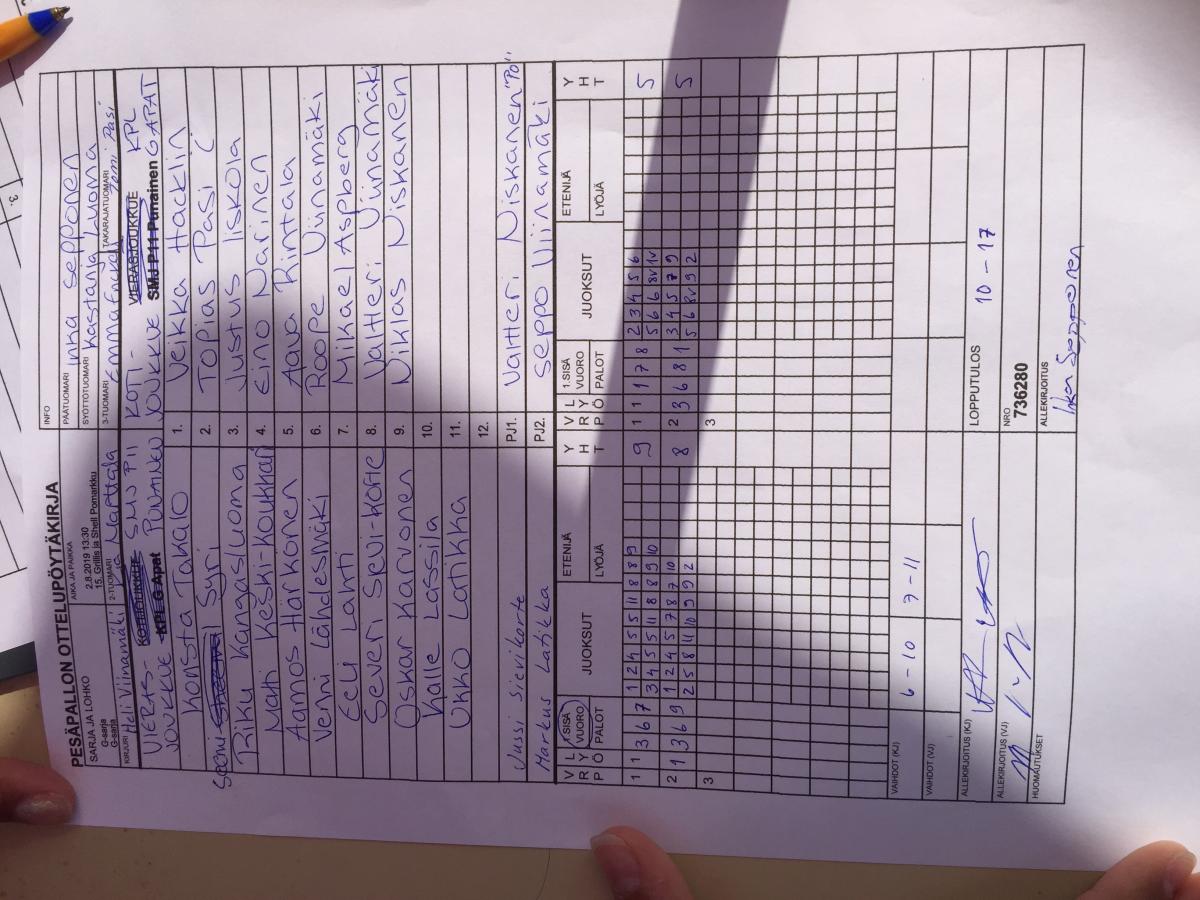 PESÄPALLON OTTELUPÖYTÄKIRJA
SARJA JA LOHKO
G-sarja
G-sarja
AIKA JA PAIKKA
2.8.2019 13:30
15. Grillis ja Shell Pomarkku
INFO
PÄÄTUOMARI Inka Sepponen
SYÖTTÖTUOMARI Kastanja Luoma
KIRJURI Heli Viinamäki
2-TUOMARI Mattala
3-TUOMARI
TAKARAJATUOMARI Pasi
VIERAS- KOTIJOUKKUE SMJ P11
JOUKKUE KPL G Apat PUNAINEN
KOTI- VIERASJOUKKUE KPL
JOUKKUE SMJ P11 Punainen G APAT
Konsta Takalo
1. Veikka Hacklin
Seemi Syri
2. Topias Pasi C
Riku Kangasluoma
3. Justus Iiskola
Matti Keski-Koukkari
4. Eino Narinen
Aamos Härkönen
5. Aava Rintala
Venni Lähdesmäki
6. Roope Viinamäki
Eeli Lahti
7. Mikael Aspberg
Severi Sevi-Korte
8. Valtteri Viinamäki
Oskar Karvonen
9. Niklas Niskanen
Kalle Lassila
10.
Ukko Latikka
11.
12.
Jussi Sievikorte
PJ1. Valtteri Niskanen "Po"
Markus Latikka
PJ2. Seppo Viinamäki
V R P L Y Ö SISÄ VUORO PALOT JUOKSUT ETENIJÄ LYÖJÄ Y H T
V R P L Y Ö 1.SISÄ VUORO PALOT JUOKSUT ETENIJÄ LYÖJÄ Y H T
1 1 3 6 7 1 2 4 5 5 11 8 8 9 9
3 4 5 5 11 8 8 9 10
1 1 1 7 8 2 3 4 5 6 5
5 6 6 8v 1v
2 1 3 6 9 1 2 4 5 7 8 7 10 8
2 5 8 11 10 9 9 2
2 3 6 8 1 3 4 5 7 9 5
5 6 8v 9 2
3
3
VAIHDOT (KJ) 6-10 7-11
VAIHDOT (VJ)
ALLEKIRJOITUS (KJ)
LOPPUTULOS 10 - 17
ALLEKIRJOITUS (VJ)
NRO
736280
HUOMAUTUKSET
ALLEKIRJOITUS
Inka Sepponen